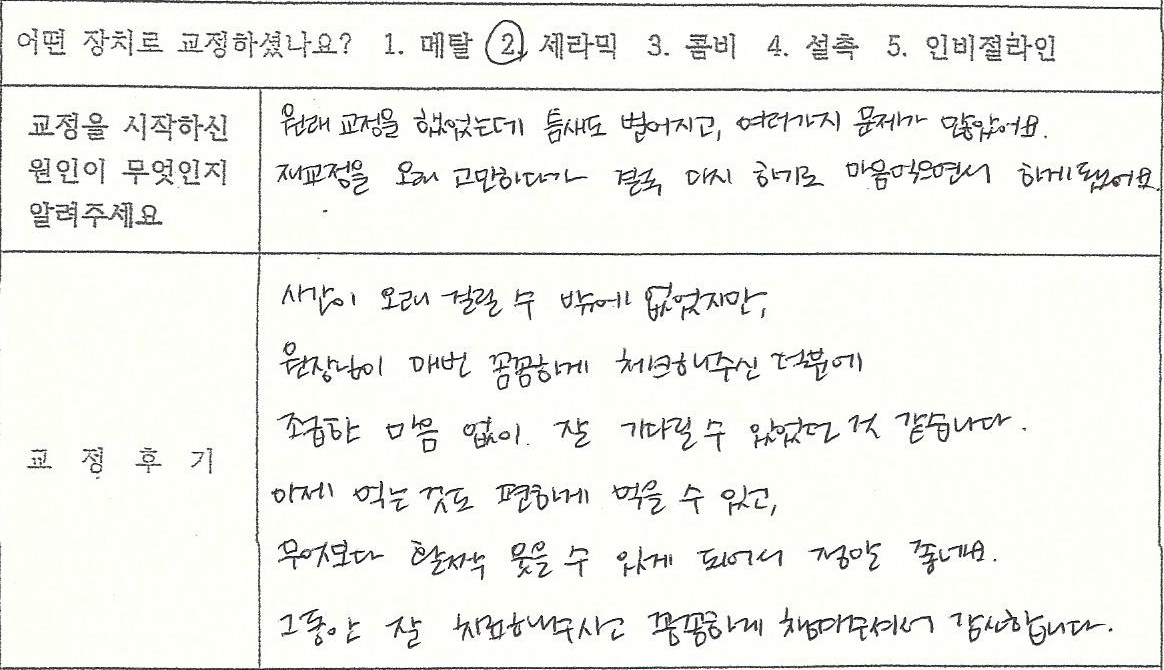 어떤 장치로 교정하셨나요? 1. 메탈 2. 세라믹 3. 콤비 4. 설측 5. 인비절라인
교정을 시작하신
원인이 무엇인지
알려주세요
원래 교정을 했었는데 틈새도 벌어지고, 여러가지 문제가 많았어요.
재교정을 오래 고민하다가 결국 다시 하기로 마음먹으면서 하게됐어요.
교 정 후 기
시간이 오래 걸릴 수 밖에 없었지만,
원장님이 매번 꼼꼼하게 체크해주신 덕분에
조급한 마음 없이 잘 기다릴 수 있었던 것 같습니다.
이제 먹는 것도 편하게 먹을 수 있고,
무엇보다 활짝 웃을 수 있게 되어서 정말 좋네요.
그동안 잘 치료해주시고 꼼꼼하게 챙겨주셔서 감사합니다.